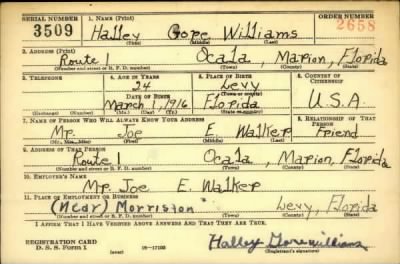 SERIAL NUMBER 1. NAME (Print) ORDER NUMBER
3509 Halley Gore Williams 2658
(First) (Middle) (Last)
2. ADDRESS (Print)
Route 1 Ocala, Marion, Florida
(Number and street or R. F. D. number) (Town) (County) (State)
3. TELEPHONE 4. AGE IN YEARS 5. PLACE OF BIRTH 6. COUNTRY OF CITIZENSHIP
24 Levy
(Town or county)
DATE OF BIRTH
March 1, 1916 Florida U.S.A.
(Exchange) (No.) (Mo.) (Day) (Yr.) (State or country)
7. NAME OF PERSON WHO WILL ALWAYS KNOW YOUR ADDRESS 8. RELATIONSHIP OF THAT PERSON
Mr. Joe E. Walker Friend
(Mr., Mrs., Miss) (First) (Middle) (Last)
9. ADDRESS OF THAT PERSON
Route 1 Ocala, Marion, Florida
(Number and street or R. F. D. number) (Town) (County) (State)
10. EMPLOYER'S NAME
Mr. Joe E. Walker
11. PLACE OF EMPLOYMENT OR BUSINESS
(Near) Morriston Levy, Florida
(Number and street or R. F. D. number) (Town) (County) (State)
I AFFIRM THAT I HAVE VERIFIED ABOVE ANSWERS AND THAT THEY ARE TRUE.
REGISTRATION CARD
D. S. S. Form 1 (over) 16—17105 Halley Gore Williams
(Registrant's signature)